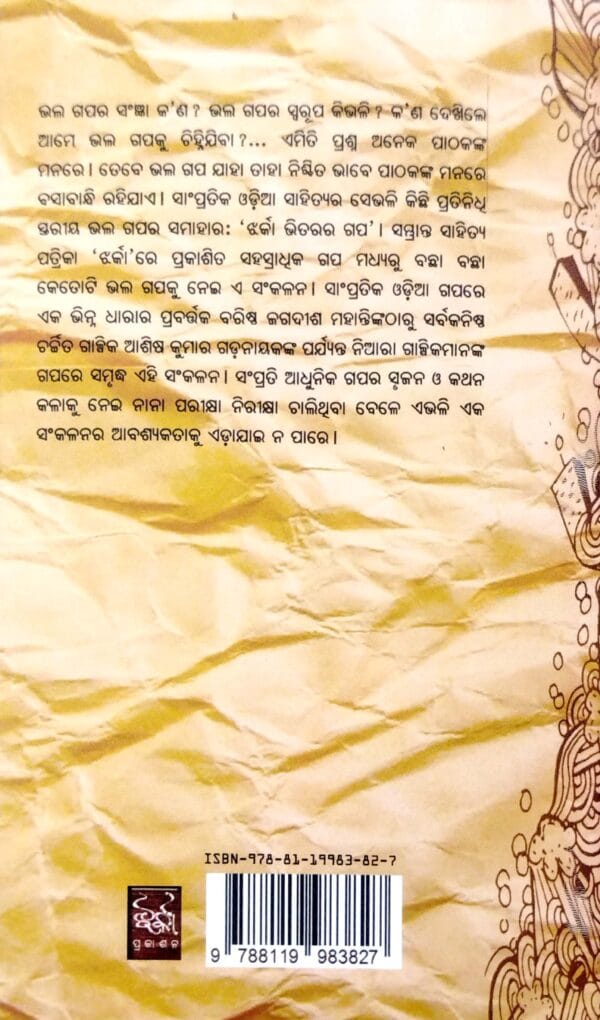 ଭଲ ଗପର ସଂଜ୍ଞା କ'ଣ? ଭଲ ଗପର ସ୍ୱରୂପ କିଭଳି? କ'ଣ ଦେଖିଲେ
ଆମେ ଭଲ ଗପକୁ ଚିହ୍ନିଯିବା?... ଏମିତି ପ୍ରଶ୍ନ ଅନେକ ପାଠକଙ୍କ
ମନରେ। ତେବେ ଭଲ ଗପ ଯାହା ତାହା ନିଶ୍ଚିତ ଭାବେ ପାଠକଙ୍କ ମନରେ
ବସାବାନ୍ଧି ରହିଯାଏ। ସାଂପ୍ରତିକ ଓଡ଼ିଆ ସାହିତ୍ୟର ସେଭଳି କିଛି ପ୍ରତିନିଧି
ସ୍ତରୀୟ ଭଲ ଗପର ସମାହାର: ‘ଝର୍କା ଭିତରର ଗପ’। ସମ୍ଭ୍ରାନ୍ତ ସାହିତ୍ୟ
ପତ୍ରିକା ‘ଝର୍କା’ରେ ପ୍ରକାଶିତ ସହସ୍ରାଧିକ ଗପ ମଧ୍ୟରୁ ବଛା ବଛା
କେତୋଟି ଭଲ ଗପକୁ ନେଇ ଏ ସଂକଳନ। ସାଂପ୍ରତିକ ଓଡ଼ିଆ ଗପରେ
ଏକ ଭିନ୍ନ ଧାରାର ପ୍ରବର୍ତ୍ତକ ବରିଷ୍ଠ ଜଗଦୀଶ ମହାନ୍ତିଙ୍କଠାରୁ ସର୍ବକନିଷ୍ଠ
ଚର୍ଚ୍ଚିତ ଗାଳ୍ପିକ ଆଶିଷ କୁମାର ଗଡ଼ନାୟକଙ୍କ ପର୍ଯ୍ୟନ୍ତ ନିଆରା ଗାଳ୍ପିକମାନଙ୍କ
ଗପରେ ସମୃଦ୍ଧ ଏହି ସଂକଳନ। ସଂପ୍ରତି ଆଧୁନିକ ଗପର ସୃଜନ ଓ କଥନ
କଳାକୁ ନେଇ ନାନା ପରୀକ୍ଷା ନିରୀକ୍ଷା ଚାଲିଥିବା ବେଳେ ଏଭଳି ଏକ
ସଂକଳନର ଆବଶ୍ୟକତାକୁ ଏଡ଼ାଯାଇ ନ ପାରେ।
ISBN-978-81-19983-82-7
ଝର୍କା
ପ୍ରକାଶନ
9 788119 983827